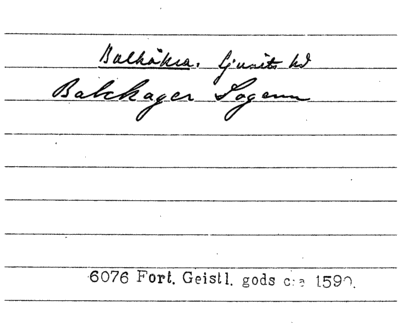 Balkåkra. Ljunits hd
Balckager Sogenn
6076 Fort. Geistl. gods c:a 1590.